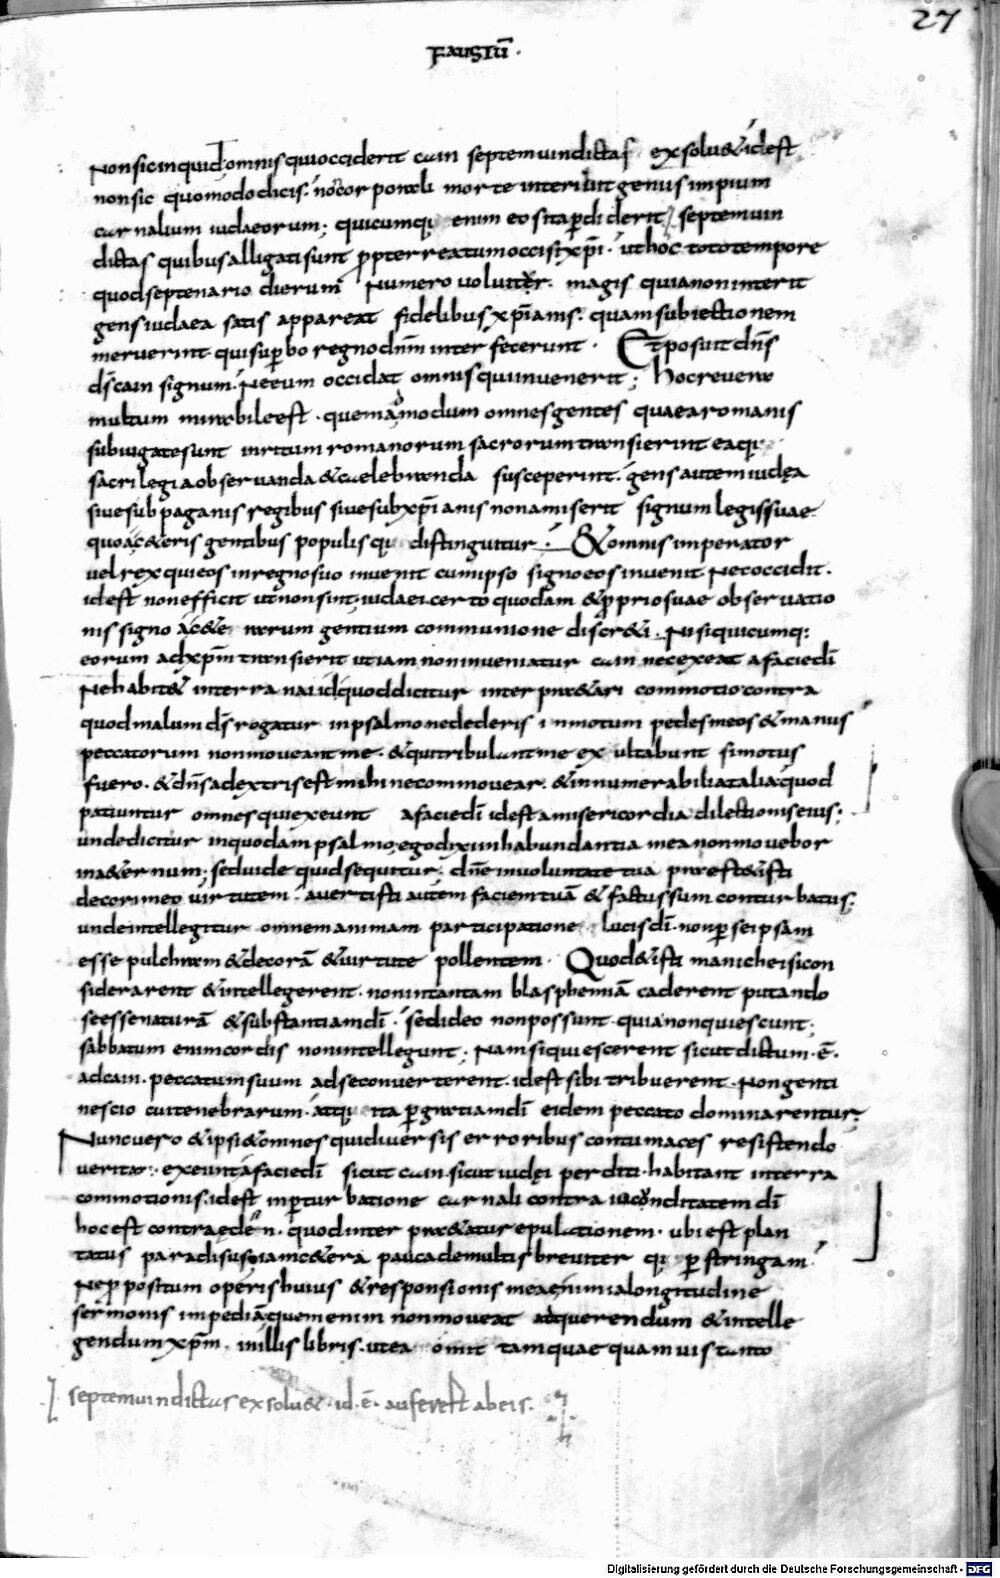 27
FAUSTŪ·
Non sic inquid omnis qui occiderit cain septem vindictas exsolu& id est
non sic quomodo dicis. non corporali morte interibit genus impium
carnalium iudaeorum; quicumq; enim eos ita p̄diderit septem vin
dictas quibus alligati sunt propter reatum occisi xp̄i· ut hoc toto tempore
quod septenario dierum numero voluitur· magis quia non interit
gens iudaea satis appareat fidelibus xp̄ianis· quam subiectionem
meruerint qui superbo regno dn̄m interfecerunt· Et posuit dn̄s
ds̄ cain signum· Ne eum occidat omnis qui invenerit; hoc revera
multum mirabile est· quemadmodum omnes gentes quae a romanis
subiugatae sunt in ritum romanorum sacrorum transierint eaq;
sacrilegia observanda & caelebranda susceperint· gens autem iudęa
sive sub paganis regibus sive sub xp̄ianis non amiserit signum legis suae·
quo a c&eris gentibus populisq; distinguitur· & omnis imperator
vel rex qui eos in regno suo invenit cum ipso signo eos invenit· Nec occidit·
id est non efficit ut non sint iudaei· certo quodam & proprio suae observatio
nis signo a c&erarum gentium communione discr&i· Nisi quicumq;
eorum ad xp̄m transierit ut iam non inveniatur cain nec exeat a facie dī
Ne habit& in terra naid quod dicitur interpr&ari commotio contra
quod malum ds̄ rogatur in psalmo ne dederis in motum pedes meos & manus
peccatorum non moveant me· & qui tribulant me exultabunt si motus
fuero· & dn̄s a dextris est mihi ne commovear· & innumerabilia talia quod
patiuntur omnes qui exeunt a facie dī id est a misericordia dilectionis eius·
unde dicitur in quodam psalmo ego dixi in habundantia mea non movebor
in a&ernum; sed vide quid sequitur· dn̄e in voluntate tua praestitisti
decori meo virtutem· avertisti autem faciem tuā & factus sum conturbatus;
unde intellegitur omnem animam participatione lucis dī· non p̄ se ipsam
esse pulchram & decorā & virtute pollentem· Quod & isti manichei si con
siderarent & intellegerent· non in tantam blasphemiā caderent putando
se esse naturā & substantiam dī· sed ideo non possunt· quia non quiescunt;
sabbatum enim cordis non intellegunt; Nam si quiescerent sicut dictum· ē·
ad cain· peccatum suum ad se converterent· id est sibi tribuerent· Non genti
nescio cui tenebrarum· atq; ita p̄ gratiam dī eidem peccato dominarentur;
Nunc vero & ipsi & omnes qui diversis erroribus contumaces resistendo
veritati exeunt a facie dī sicut cain· sicut iudęi perditi· habitant in terra
commotionis· id est in p̄turbatione carnali contra iucunditatem dī
hoc est contra eden· quod interpr&atur epulationem· ubi est plan
tatus paradisus; iam c&era pauca de multis breviterq; p̄stringam
Ne propositum operis huius & responsionis meae nimia longitudine
sermonis impediā quem enim non moveat ad querendum & intelle
gendum xp̄m· in illis libris· ut ea omittam quae quamvis tanto
septem vindictas exsolu&· id· ē· auferet ab eis·
Digitalisierung gefördert durch die Deutsche Forschungsgemeinschaft - DFG